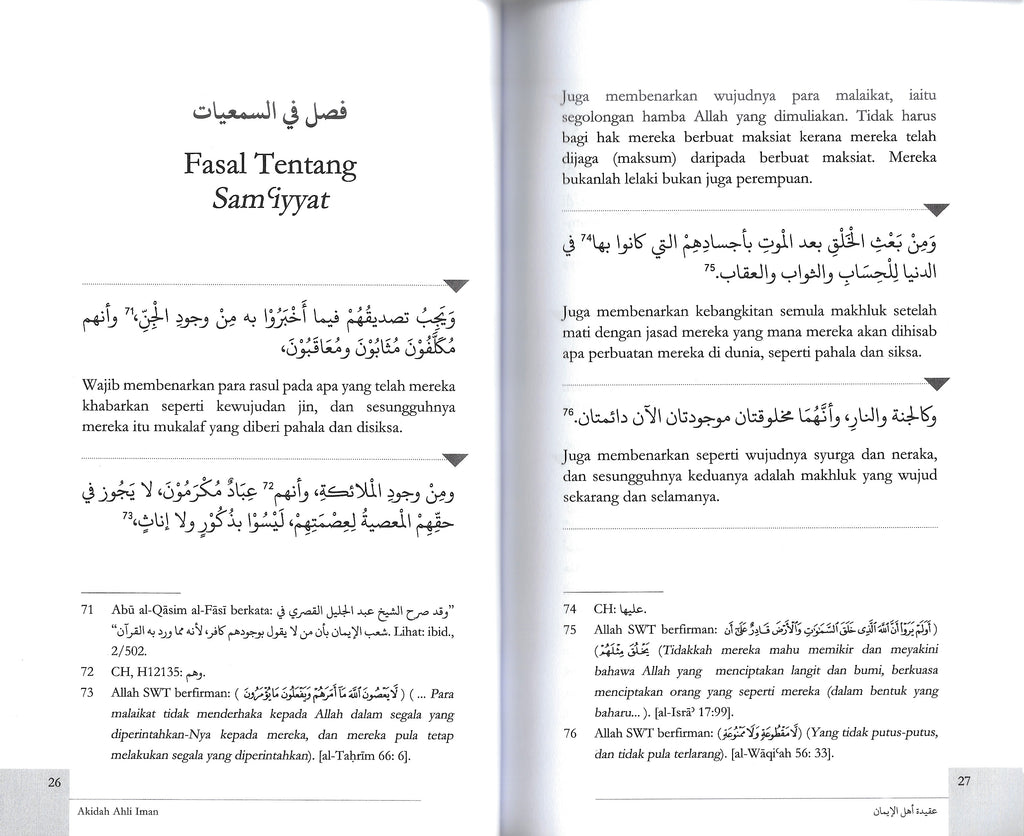 فصل في السمعيات
Fasal Tentang
Samʿiyyat
وَيَجِبُ تصديقُهُمْ فيما أَخْبَرُوْا به مِنْ وجودِ الجْنِّ،71 وأنهم
مُكَلَّفُوْنَ مُثَابُوْنَ ومُعَاقَبُوْنَ،
Wajib membenarkan para rasul pada apa yang telah mereka
khabarkan seperti kewujudan jin, dan sesungguhnya
mereka itu mukalaf yang diberi pahala dan disiksa.
ومِنْ وجودِ الملائكةِ، وأنهم72 عِبَادٌ مُكْرَمُوْنَ، لا يَجُوز في
حقِّهِمْ المعصيةُ لِعِصْمَتِهِمْ، لَيْسُوا بِذُكُوْرٍ ولا إناثٍ،73
71 Abū al-Qāsim al-Fāsī berkata: "وقد صرح الشيخ عبد الجليل القصري في
شعب الإيمان بأن من لا يقول بوجودهم كافر، لأنه مما ورد به القرآن". Lihat: ibid.,
2/502.
72 CH, H12135: وهم.
73 Allah SWT berfirman: ( لَا يَعْصُونَ اللَّهَ مَا أَمَرَهُمْ وَيَفْعَلُونَ مَا يُؤْمَرُونَ ) ( ... Para
malaikat tidak menderhaka kepada Allah dalam segala yang
diperintahkan-Nya kepada mereka, dan mereka pula tetap
melakukan segala yang diperintahkan). [al-Taḥrīm 66: 6].
26
Akidah Ahli Iman
Juga membenarkan wujudnya para malaikat, iaitu
segolongan hamba Allah yang dimuliakan. Tidak harus
bagi hak mereka berbuat maksiat kerana mereka telah
dijaga (maksum) daripada berbuat maksiat. Mereka
bukanlah lelaki bukan juga perempuan.
وَمِنْ بَعْثِ الخْلْقِ بعد الموتِ بأجسادِهِمْ التي كانوا بها74 في
الدنيا لِلْحِسَابِ والثوابِ والعقابِ.75
Juga membenarkan kebangkitan semula makhluk setelah
mati dengan jasad mereka yang mana mereka akan dihisab
apa perbuatan mereka di dunia, seperti pahala dan siksa.
وكالجنة والنار، وأنَّهُمَا مخلوقتان موجودتان الآن دائمتان.76
Juga membenarkan seperti wujudnya syurga dan neraka,
dan sesungguhnya keduanya adalah makhluk yang wujud
sekarang dan selamanya.
74 CH: عليها.
75 Allah SWT berfirman: ( أَوَلَمْ يَرَوْا أَنَّ اللَّهَ الَّذِي خَلَقَ السَّمَوَاتِ وَالْأَرْضَ قَادِرٌ عَلَى أَن
يَخْلُقَ مِثْلَهُمْ) (Tidakkah mereka mahu memikir dan meyakini
bahawa Allah yang menciptakan langit dan bumi, berkuasa
menciptakan orang yang seperti mereka (dalam bentuk yang
baharu... ). [al-Isrāʾ 17:99].
76 Allah SWT berfirman: (لَا مَقْطُوعَةٍ وَلَا مَمْنُوعَةٍ) (Yang tidak putus-putus,
dan tidak pula terlarang). [al-Wāqiʿah 56: 33].
27
عقيدة أهل الإيمان